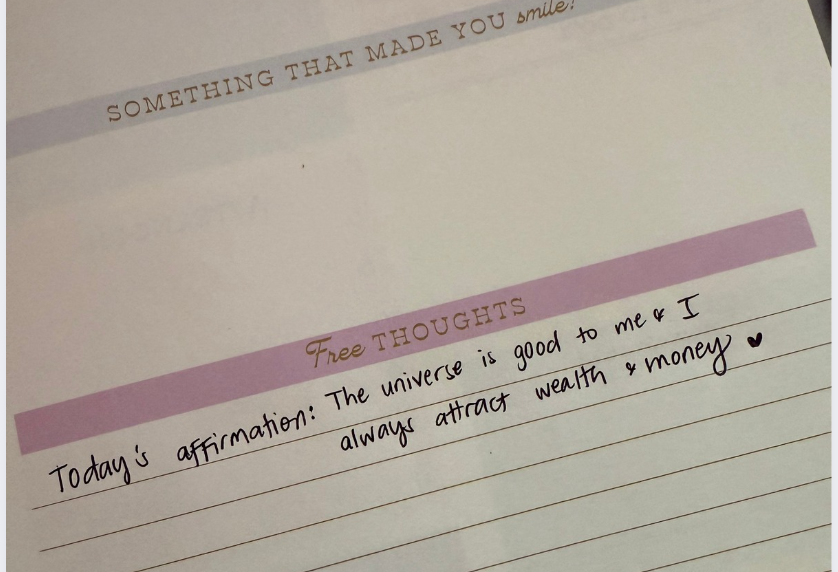 SOMETHING THAT MADE YOU smile!
Free THOUGHTS
Today's affirmation: The universe is good to me & I
always attract wealth & money ♥